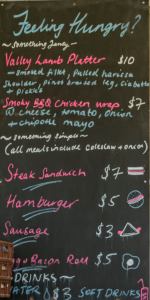 Feeling Hungry?
~ Something Fancy ~
Valley Lamb Platter $10
- smoked fillet, pulled harissa
shoulder, pinot braised leg, ciabatta
+ pickle
Smoky BBQ Chicken wrap $7
w cheese, tomato, onion
+ chipotle mayo
~ something simple ~
(all meals include coleslaw + onion)
Steak Sandwich $7
Hamburger $5
Sausage $3
Bacon Roll $5
DRINKS
WATER $3 SOFT DRINKS